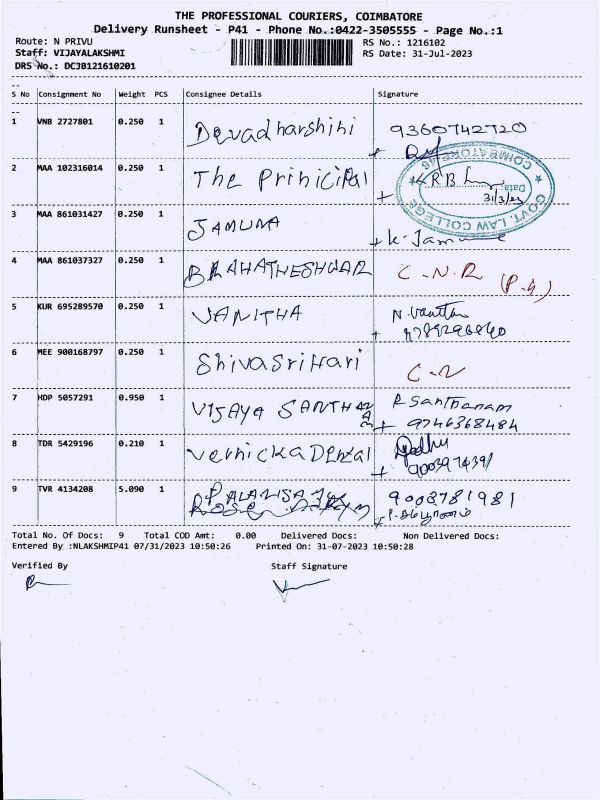 THE PROFESSIONAL COURIERS, COIMBATORE
Delivery Runsheet - P41 - Phone No.:0422-3505555 - Page No.:1
Route: N PRIVU RS No.: 1216102
Staff: VIJAYALAKSHMI RS Date: 31-Jul-2023
DRS No.: DCJB121610201
S No Consignment No Weight PCS Consignee Details Signature
1 VNB 2727801 0.250 1 Devadharshini 9360742720
2 MAA 102316014 0.250 1 The Prinicipal
COIMBATORE-46
Date:
GOVT. LAW COLLEGE
3 MAA 861031427 0.250 1 JAMUNA K. Jamuna
4 MAA 861037327 0.250 1 BRAHATHESHWAR C.N.R (P.4)
5 KUR 695289570 0.250 1 VANITHA N. Vanitha
6 MEE 900168797 0.250 1 Shivasrihari C-N
7 HDP 5057291 0.950 1 VIJAYA SANTHANAM R Santhanam
9746368484
8 TDR 5429196 0.210 1 Vernicka Dental
9 TVR 4134208 5.090 1 9003781981
Total No. Of Docs: 9 Total COD Amt: 0.00 Delivered Docs: Non Delivered Docs:
Entered By :NLAKSHMIP41 07/31/2023 10:50:26 Printed On: 31-07-2023 10:50:28
Verified By Staff Signature